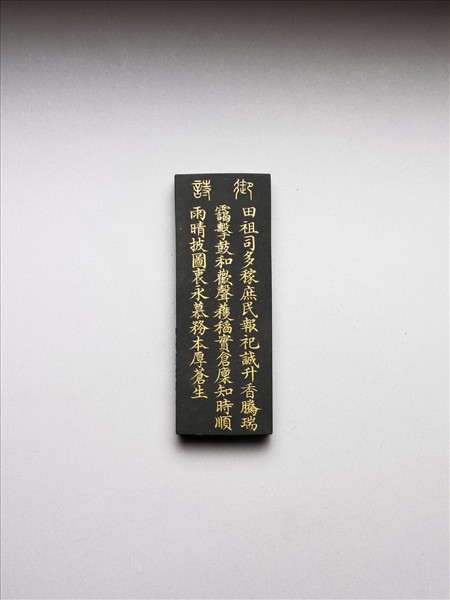 御詩
田祖司多稼庶民報祀誠升香騰瑞
靄擊鼓和歡聲穫稲實倉廩知時順
雨晴披圖衷永慕務本厚蒼生